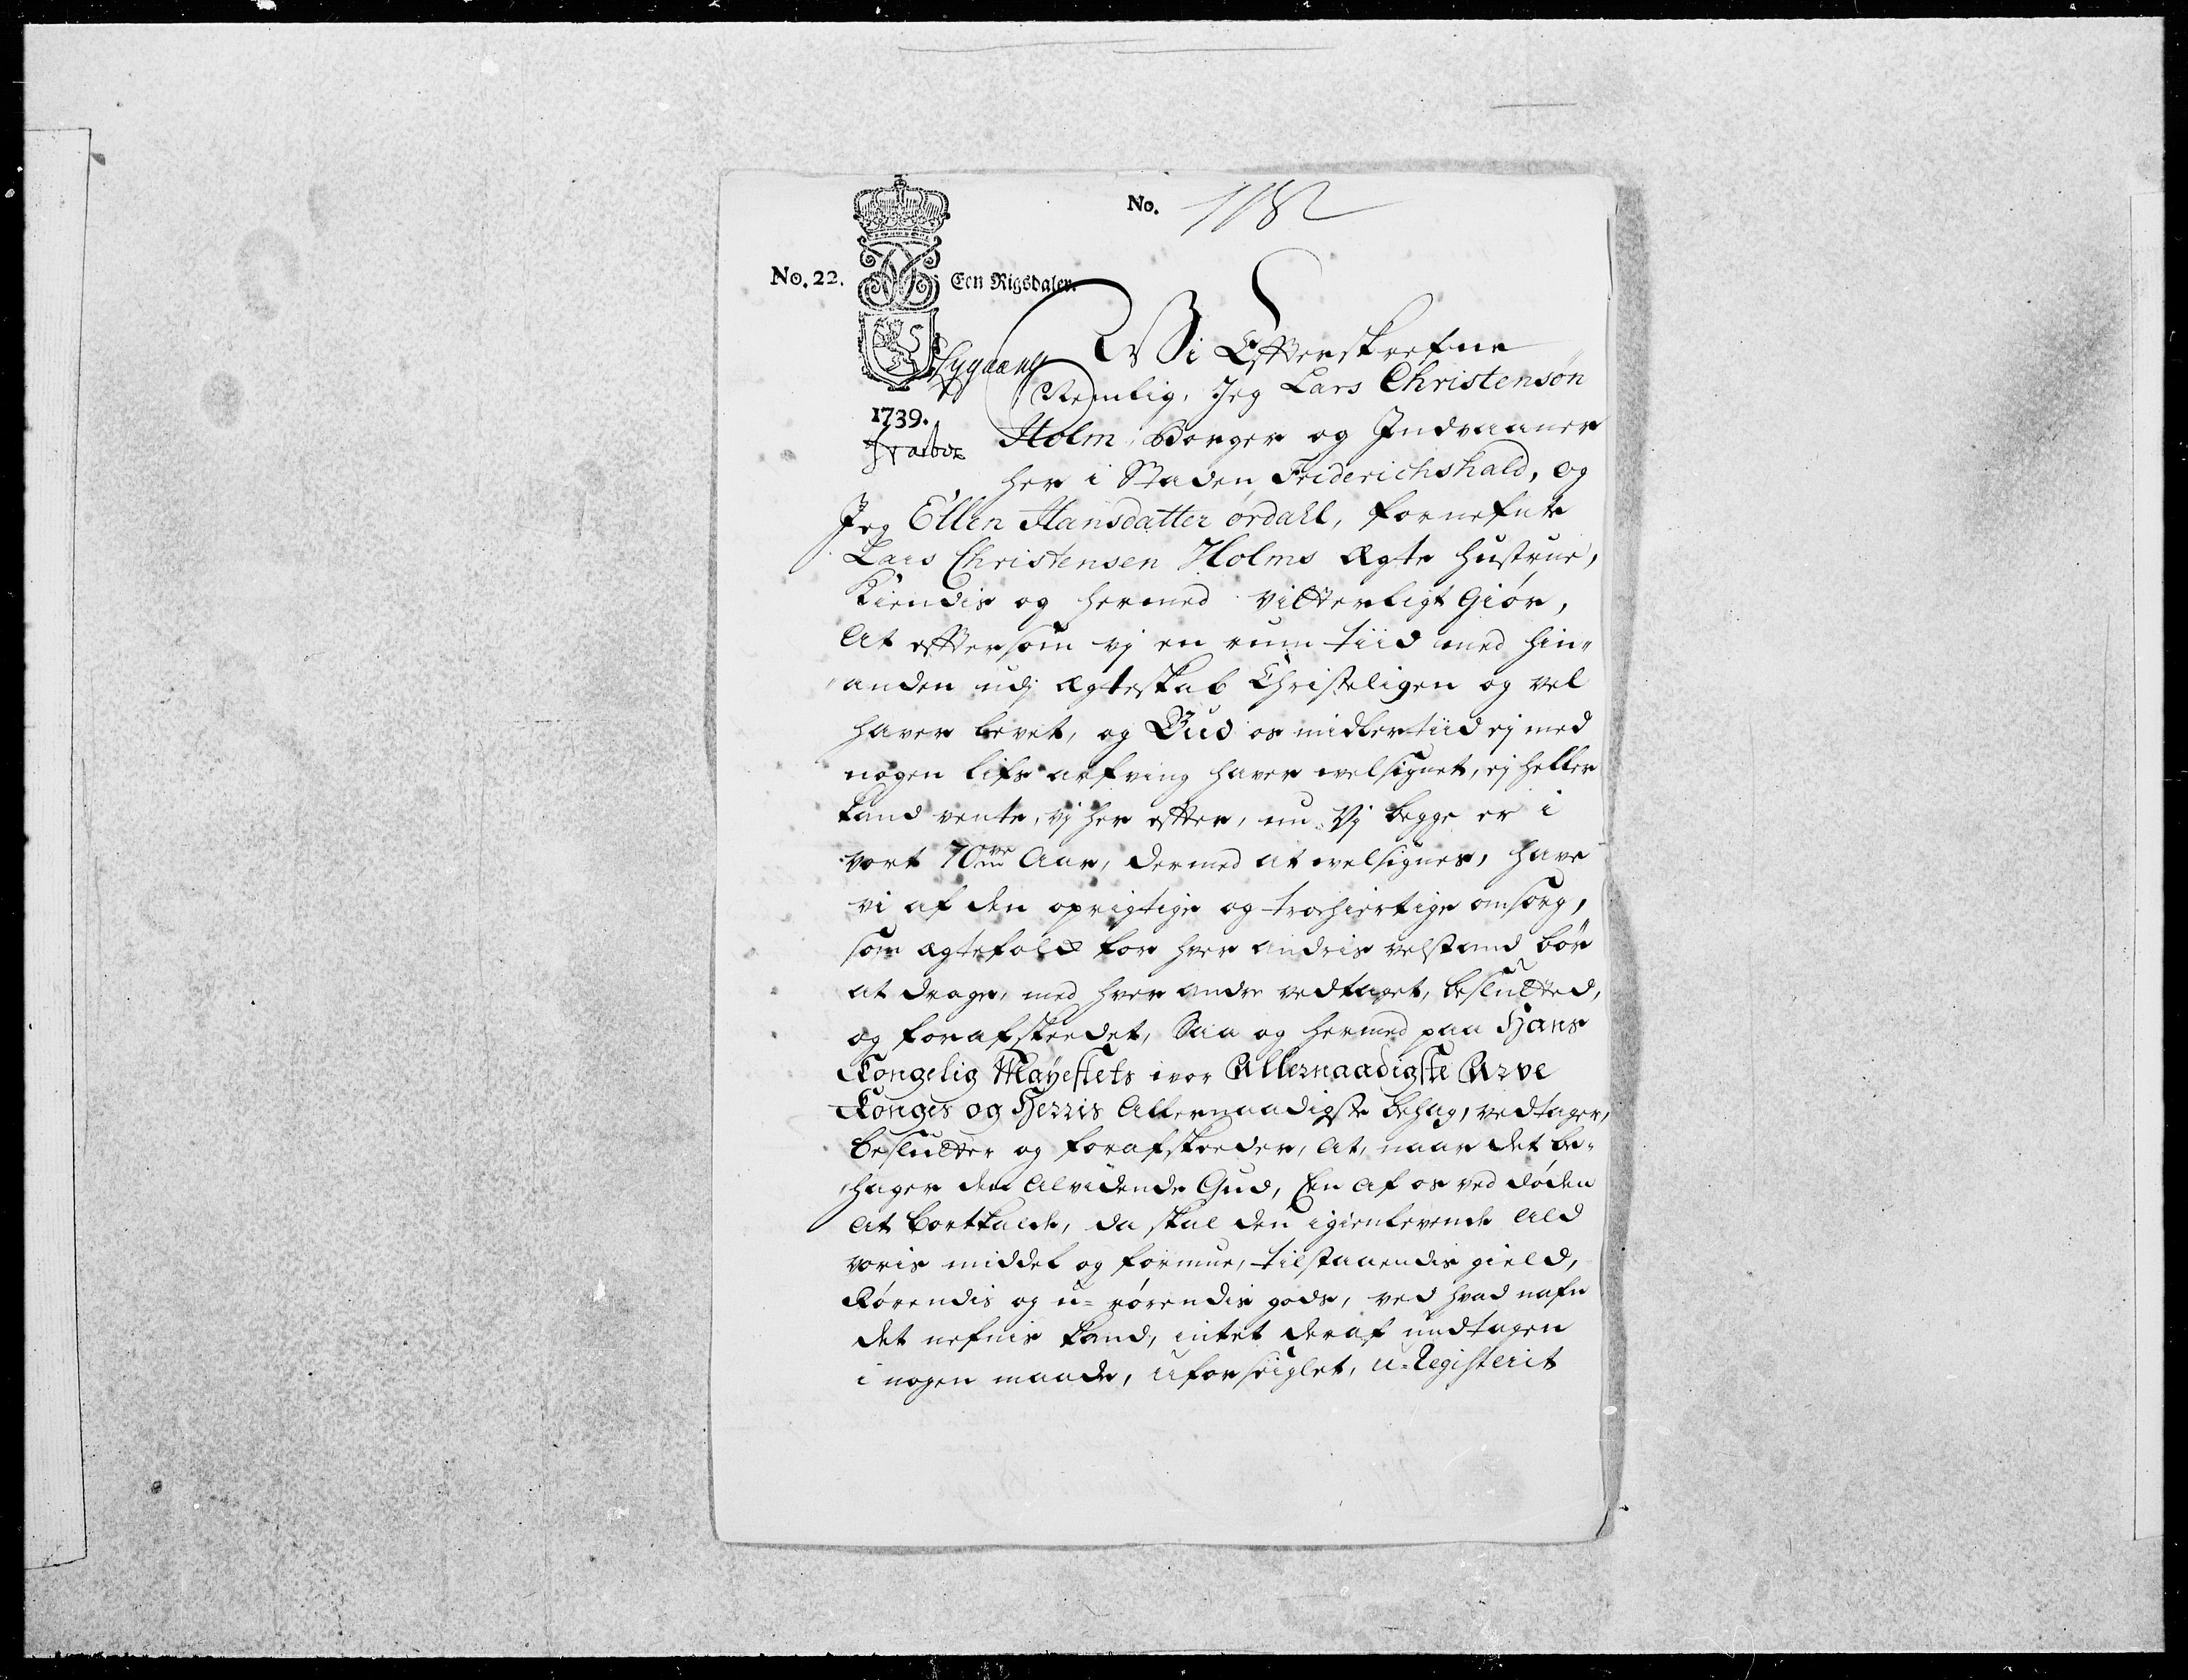 No. 1182
No. 22. Een Rigsdaler.
Wi Efterskrefne
Nemlig, Jeg Lars Christensön
1739.
Holm, Borger og Indvaaner
her i Staden Friderichshald, og
Jeg Ellen Hansdatter ørdahl, fornefnte
Lars Christensen Holms Ægte Hustrue,
Kiendis og hermed vitterligt Giør,
At eftersom vj en rum tiid med hin-
anden udj Ægteskab Christeligen og vel
haver levet, og Gud os midlertiid ej med
nogen lifs arfving haver velsignet, ej heller
kand vente, vj her efter, nu Vj begge er i
vort 70ve Aar, dermed at velsignes, have
vi af den oprigtige og trohiertige omsorg,
som Ægtefolk for hver andris velstand bør
at drage, med hver andre vedtaget, beslutted,
og forafskeedet, Saa og hermed paa Hans
Kongelig Mayestets vor Allernaadigste Arve
Konges og Herris Allernaadigste behag, vedtager,
beslutter og forafskeeder, At, naar det be-
hager den Alvidende Gud, Een af os ved døden
At bortkalde, da skal den igienlevende Ald
voris middel og formue, tilstaaendis gield,
Rørendis og u-rørendis gods, ved hvad nafn
det nefnis kand, intet deraf undtagen
i nogen maade, uforseiglet, u-Registerit